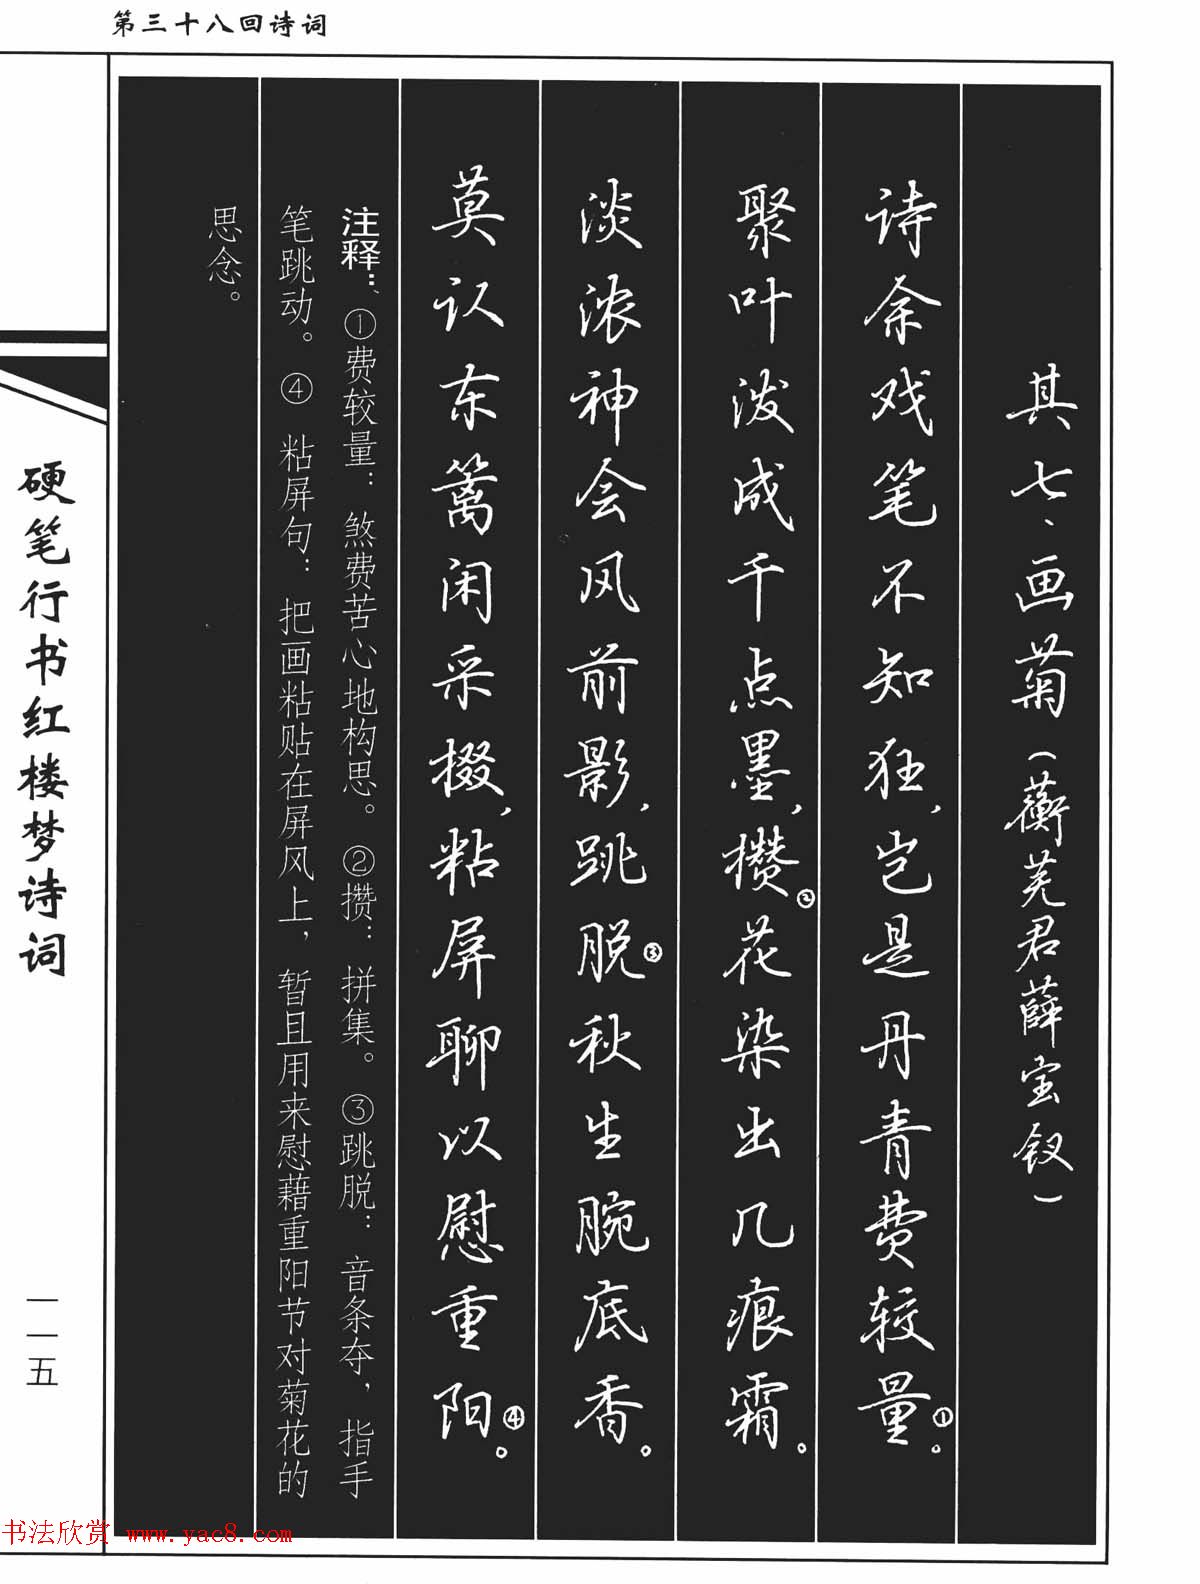 第三十八回诗词
其七、画菊（蘅芜君薛宝钗）
诗余戏笔不知狂，岂是丹青费较量①。
聚叶泼成千点墨，攒②花染出几痕霜。
淡浓神会风前影，跳脱③秋生腕底香。
莫认东篱闲采掇，粘屏聊以慰重阳④。
注释：①费较量：煞费苦心地构思。②攒：拼集。③跳脱：音条夺，指手
笔跳动。④粘屏句：把画粘贴在屏风上，暂且用来慰藉重阳节对菊花的
思念。
硬笔行书红楼梦诗词
一一五
书法欣赏 www.yac8.com